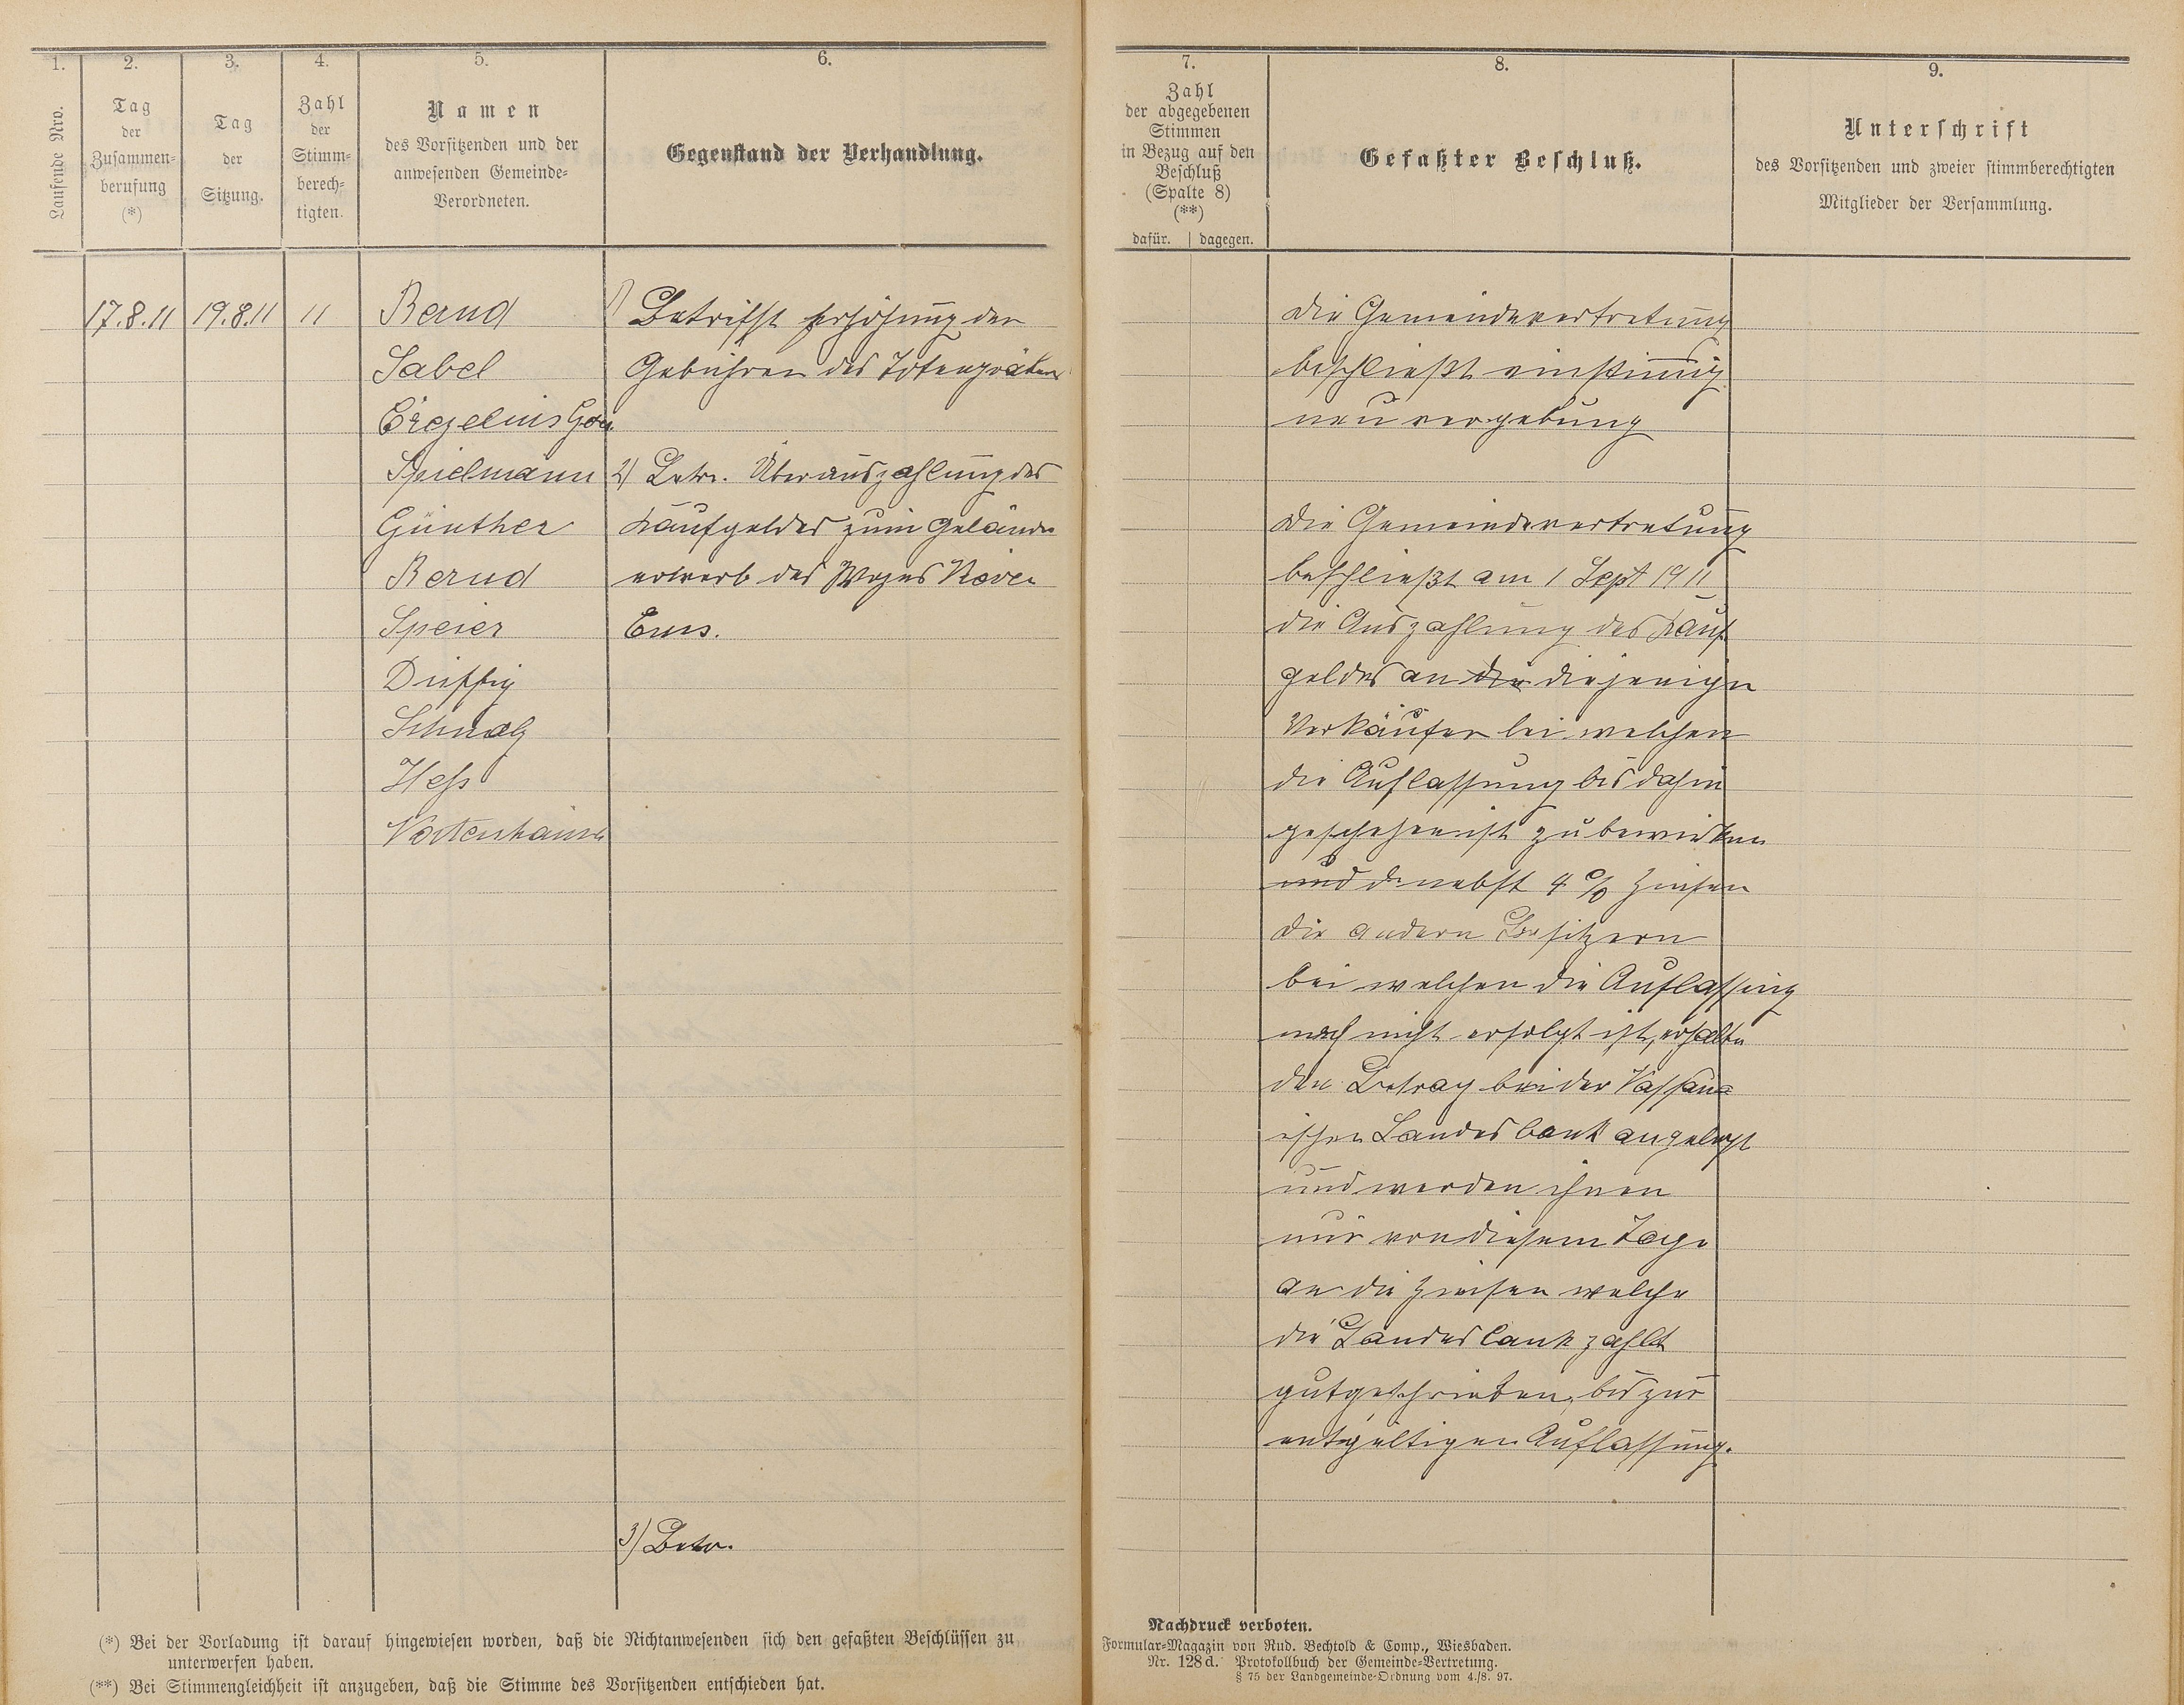 1.
Laufende Nro.
2.
Tag
der
Zusammen=
berufung
(*)
3.
Tag
der
Sitzung.
4.
Zahl
der
Stimm=
berech=
tigten.
5.
Namen
des Vorsitzenden und der
anwesenden Gemeinde=
Verordneten.
6.
Gegenstand der Verhandlung.
17.8.11 19.8.11 11
Bernd
Sabel
Spielmann
Günther
Bernd
Speier
Heß
1) Betrifft Erhöhung der
Gebühren des Totengräbers
2) Betr. Überauszahlung des
Kaufgeldes zum Gelände
erwerb des Weges
Ems.
3) Betr.
(*) Bei der Vorladung ist darauf hingewiesen worden, daß die Nichtanwesenden sich den gefaßten Beschlüssen zu
unterwerfen haben.
(**) Bei Stimmengleichheit ist anzugeben, daß die Stimme des Vorsitzenden entschieden hat.
7.
Zahl
der abgegebenen
Stimmen
in Bezug auf den
Beschluß
(Spalte 8)
(**)
dafür. dagegen.
8.
Gefaßter Beschluß.
9.
Unterschrift
des Vorsitzenden und zweier stimmberechtigten
Mitglieder der Versammlung.
Die Gemeindevertretung
beschließt einstimmig
neu vergebung
Die Gemeindevertretung
beschließt am 1 Sept 1911
die Auszahlung des Kauf
geldes an die diejenigen
Verkäufer bei welchen
die Auflassung bis dahin
geschehen ist zu bewirken
und nebst 4 % Zinsen
Die andern Besitzern
bei welchen die Auflassung
noch nicht erfolgt ist, erhalten
den Betrag bei der Nassau=
ischen Landesbank angelegt
und werden ihnen
nur von diesem Tage
an die Zinsen welche
die Landesbank zahlt
gutgeschrieben, bis zur
entgültigen Auflassung.
Nachdruck verboten.
Formular=Magazin von Rud. Bechtold & Comp., Wiesbaden.
Nr. 128d. Protokollbuch der Gemeinde=Vertretung.
§ 75 der Landgemeinde=Ordnung vom 4./8. 97.